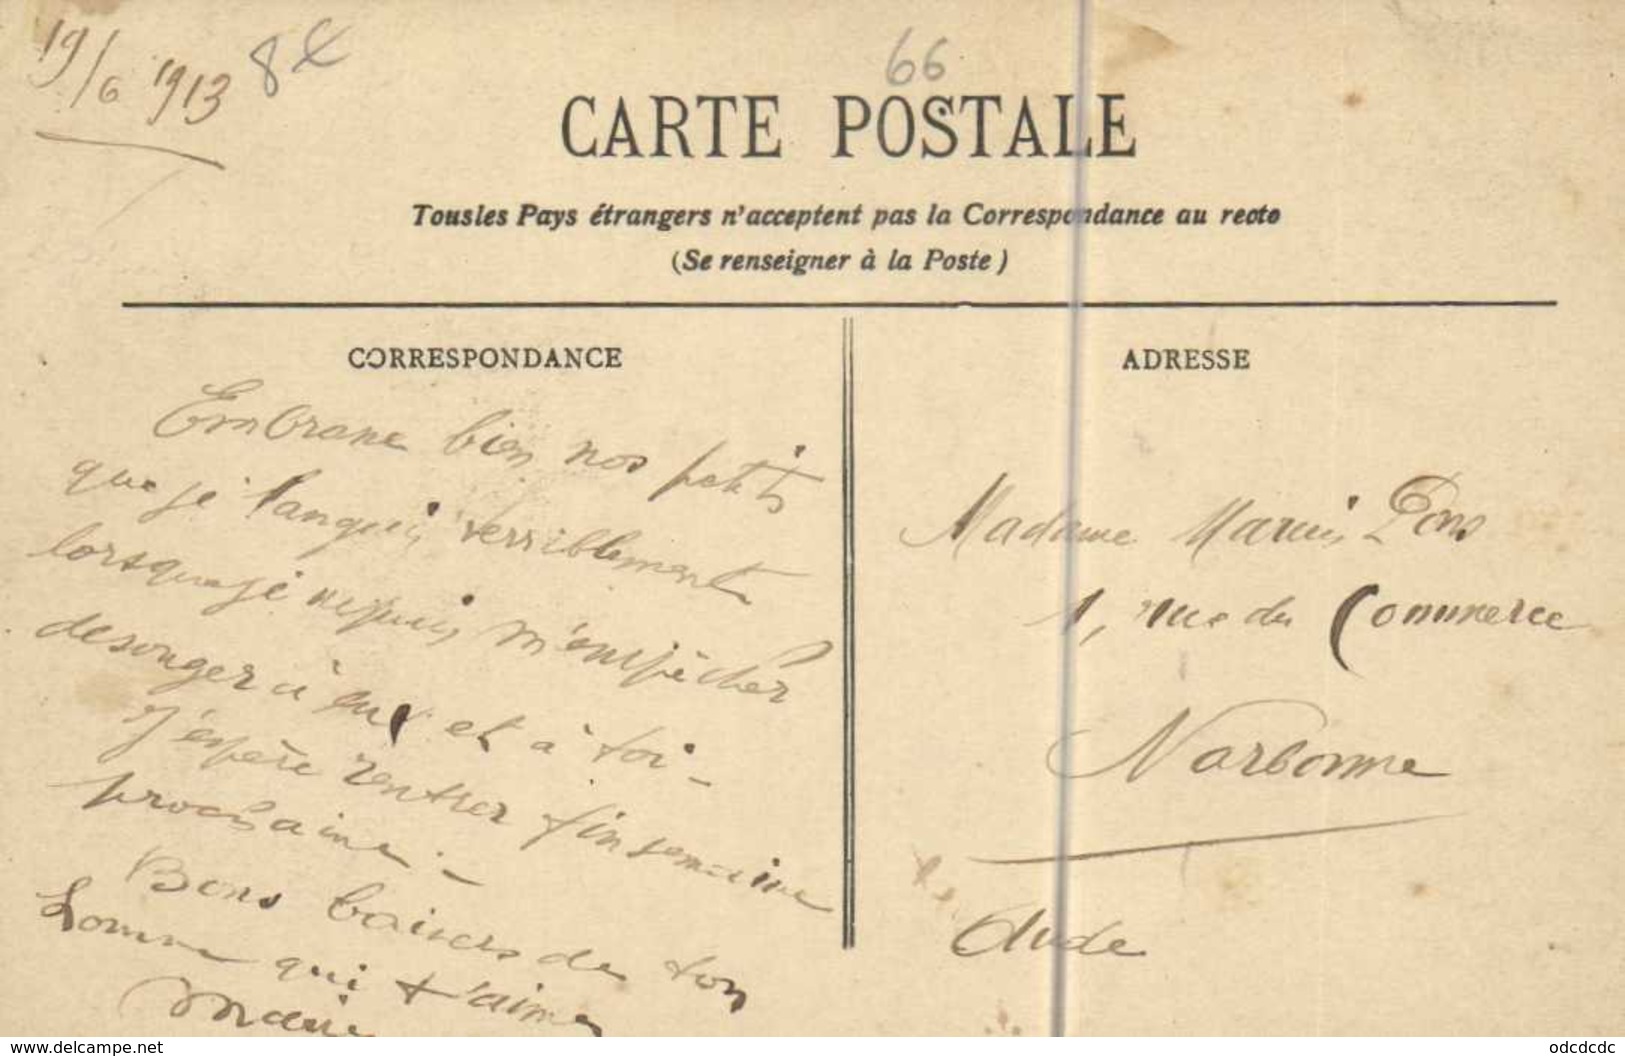 19/6 1913 8€
66
CARTE POSTALE
Tousles Pays étrangers n'acceptent pas la Correspondance au recto
(Se renseigner à la Poste)
CORRESPONDANCE
Embrasse bien nos petits
que je languis terriblement
lorsque je ne puis m'empêcher
de songer à eux et à toi -
J'espère rentrer fin semaine
prochaine. -
Bons baisers de ton
homme qui t'aime
ADRESSE
Madame Marius Pons
1, rue du Commerce
Narbonne
Aude
www.delcampe.net
odcdcdc